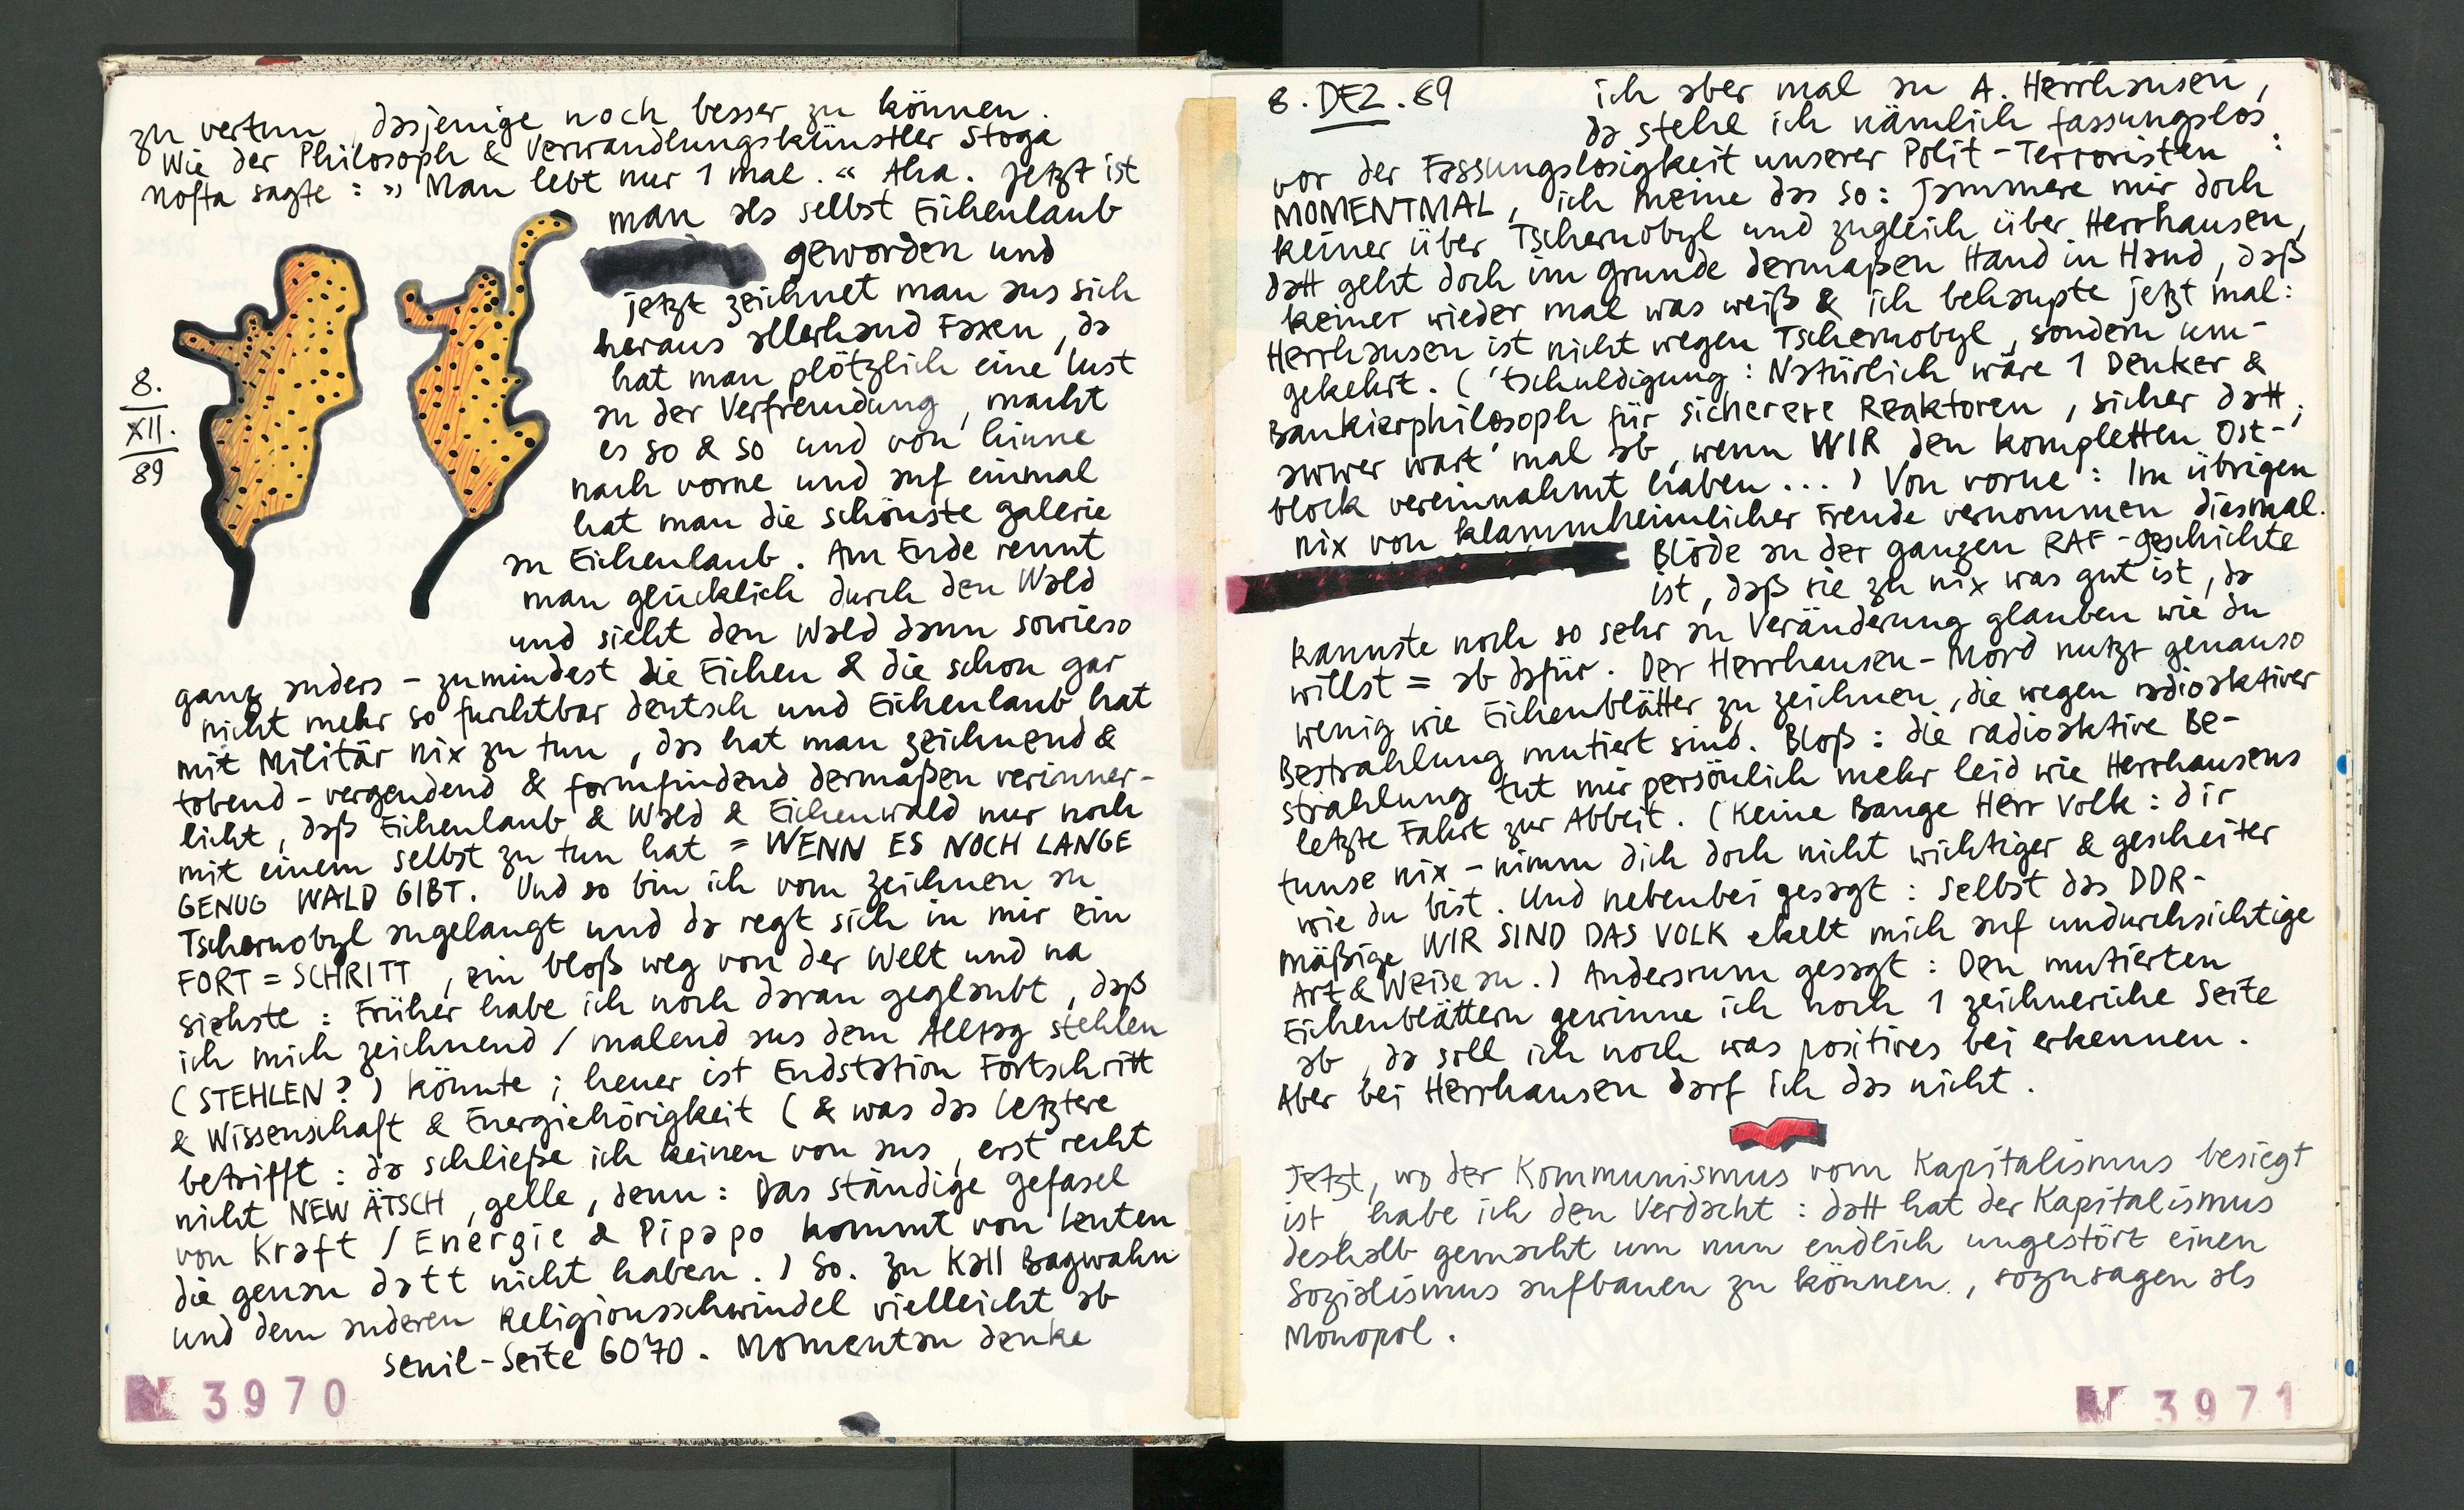 zu vertun, dasjenige noch besser zu können.
Wie der Philosoph & Verwandlungskünstler Stoga
nofta sagte : » Man lebt nur 1 mal. « Aha. Jetzt ist
man als selbst Eichenlaub
geworden und
jetzt zeichnet man aus sich
heraus allerhand Faxen, da
hat man plötzlich eine Lust
an der Verfremdung, macht
es so & so und von hinne
nach vorne und auf einmal
hat man die schönste galerie
an Eichenlaub. Am Ende rennt
man glücklich durch den Wald
und sieht den Wald dann sowieso
ganz anders - zumindest die Eichen & die schon gar
nicht mehr so furchtbar deutsch und Eichenlaub hat
mit Militär nix zu tun, das hat man zeichnend &
tobend - vergeudend & formfindend dermaßen verinner-
licht, daß Eichenlaub & Wald & Eichenwald nur noch
mit einem selbst zu tun hat = WENN ES NOCH LANGE
GENUG WALD GIBT. Und so bin ich vom zeichnen an
Tschernobyl angelangt und da regt sich in mir ein
FORT = SCHRITT, ein bloß weg von der Welt und na
siehste : Früher habe ich noch daran geglaubt, daß
ich mich zeichnend / malend aus dem Alltag stehlen
(STEHLEN?) könnte ; heuer ist Endstation Fortschritt
& Wissenschaft & Energiehörigkeit (& was das letztere
betrifft : da schließe ich keinen von aus, erst recht
nicht NEW ÄTSCH, gelle, denn : Das ständige gefasel
von Kraft / Energie & Pipapo kommt von leuten
die genau datt nicht haben.) So. Zu Kall Bagwahn
und dem anderen Religionsschwindel vielleicht ab
senil-Seite 6070. Momentan denke
8.
XII.
89
N 3970
8. DEZ. 89
ich aber mal an A. Herrhausen,
da stehe ich nämlich fassungslos
vor der Fassungslosigkeit unserer Polit-Terroristen :
MOMENTMAL, ich meine das so : Jammere mir doch
keiner über Tschernobyl und zugleich über Herrhausen,
datt geht doch im grunde dermaßen Hand in Hand, daß
keiner wieder mal was weiß & ich behaupte jetzt mal :
Herrhausen ist nicht wegen Tschernobyl, sondern um-
gekehrt. ('tschuldigung : Natürlich wäre 1 Denker &
Bankierphilosoph für sicherere Reaktoren, sicher datt ;
awwer wart' mal ab, wenn WIR den kompletten Ost-
block vereinnahmt haben ... ) Von vorne : Im übrigen
nix von klammheimlicher Freude vernommen diesmal.
Blöde an der ganzen RAF-geschichte
ist, daß sie zu nix was gut ist, da
kannste noch so sehr an Veränderung glauben wie du
willst = ab dafür. Der Herrhausen-Mord nutzt genauso
wenig wie Eichenblätter zu zeichnen, die wegen radioaktiver
Bestrahlung mutiert sind. Bloß : die radioaktive Be-
strahlung tut mir persönlich mehr leid wie Herrhausens
letzte Fahrt zur Abbeit. (Keine Bange Herr Volk : dir
tunse nix - nimm dich doch nicht wichtiger & gescheiter
wie du bist. Und nebenbei gesagt : Selbst das DDR-
mäßige WIR SIND DAS VOLK ekelt mich auf undurchsichtige
Art & Weise an.) Andersrum gesagt : Den mutierten
Eichenblättern gewinne ich noch 1 zeichneriche Seite
ab, da soll ich noch was positives bei erkennen.
Aber bei Herrhausen darf ich das nicht.
Jetzt, wo der Kommunismus vom Kapitalismus besiegt
ist, habe ich den Verdacht : datt hat der Kapitalismus
deshalb gemacht um nun endlich ungestört einen
Sozialismus aufbauen zu können, sozusagen als
Monopol.
N 3971